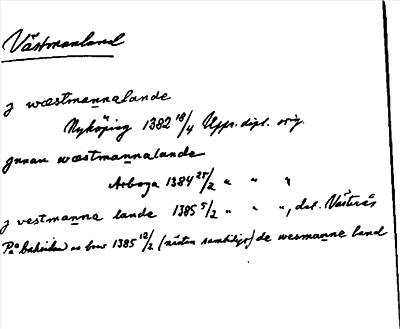 Västmanland
j wæstmannalande
Nyköping 1382 18/4 Upps. dipl. orig.
jnnan wæstmannalande
Arboga 1384 25/2 " " "
j vestmanna lande 1385 5/2 " " ", dat. Västerås
På baksidan av brev 1385 12/2 (nästan samtidigt) de wesmanne land